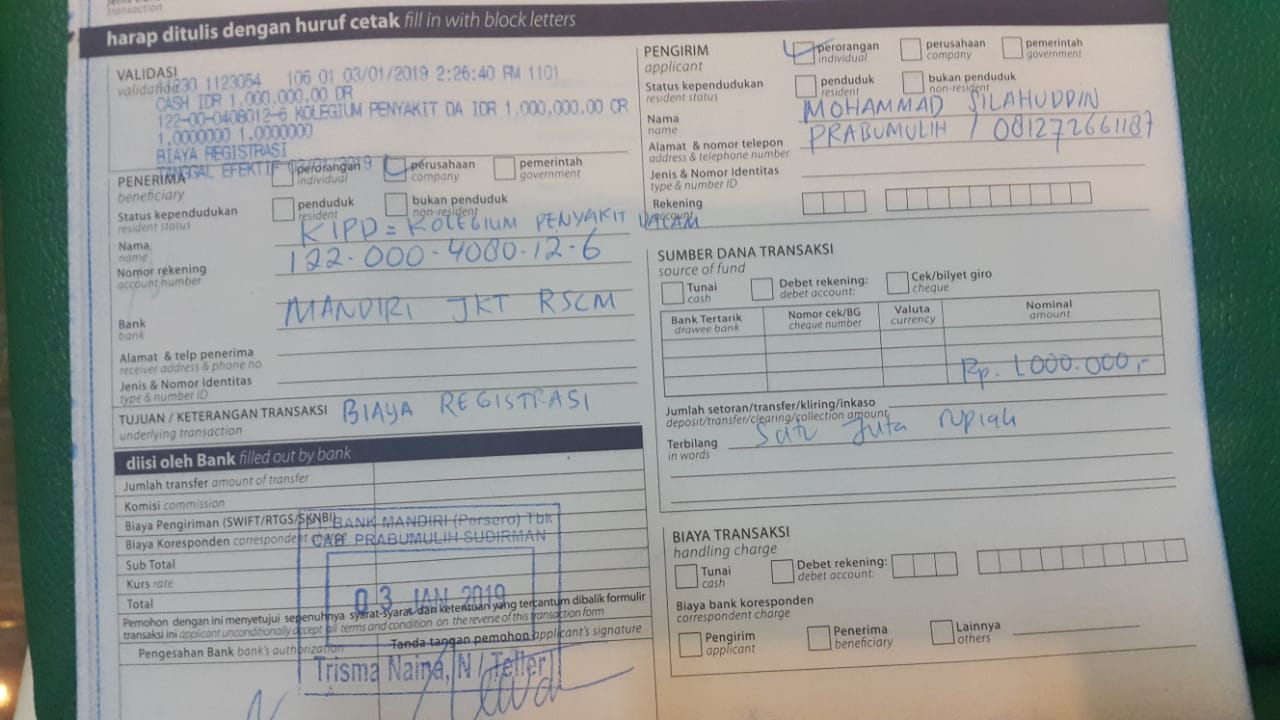 transaction
harap ditulis dengan huruf cetak fill in with block letters
VALIDASI
validation
1123054 106 01 03/01/2019 2:26:40 PM 1101
CASH IDR 1,000,000.00 DR
122-00-0408012-6 KOLEGIUM PENYAKIT DA IDR 1,000,000.00 CR
1.0000000 1.0000000
BIAYA REGISTRASI
TANGGAL EFEKTIF 03/01/2019
PENERIMA
beneficiary
perorangan
individual
perusahaan
company
pemerintah
government
Status kependudukan
resident status
penduduk
resident
bukan penduduk
non-resident
Nama
name
KIPD = KOLEGIUM PENYAKIT DALAM
Nomor rekening
account number
122-000-4080-12-6
Bank
bank
MANDIRI JKT RSCM
Alamat & telp penerima
receiver address & phone no
Jenis & Nomor Identitas
type & number ID
TUJUAN / KETERANGAN TRANSAKSI
underlying transaction
BIAYA REGISTRASI
diisi oleh Bank filled out by bank
Jumlah transfer amount of transfer
Komisi commission
Biaya Pengiriman (SWIFT/RTGS/SKNBI)
Biaya Koresponden correspondent charge
Sub Total
Kurs rate
Total
BANK MANDIRI (Persero) Tbk
CAB PRABUMULIH SUDIRMAN
03 JAN 2019
Pemohon dengan ini menyetujui sepenuhnya syarat-syarat dan ketentuan yang tercantum dibalik formulir
transaksi ini applicant unconditionally accept all terms and condition on the reverse of this transaction form
Pengesahan Bank bank's authorization
Tanda tangan pemohon applicant's signature
Trisma Naina, N / Teller
PENGIRIM
applicant
perorangan
individual
perusahaan
company
pemerintah
government
Status kependudukan
resident status
penduduk
resident
bukan penduduk
non-resident
Nama
name
MOHAMMAD SILAHUDDIN
Alamat & nomor telepon
address & telephone number
PRABUMULIH / 081272661187
Jenis & Nomor Identitas
type & number ID
Rekening
account
SUMBER DANA TRANSAKSI
source of fund
Tunai
cash
Debet rekening:
debet account:
Cek/bilyet giro
cheque
Bank Tertarik
drawee bank
Nomor cek/BG
cheque number
Valuta
currency
Nominal
amount
Rp. 1.000.000,-
Jumlah setoran/transfer/kliring/inkaso
deposit/transfer/clearing/collection amount
Terbilang
in words
Satu Juta rupiah
BIAYA TRANSAKSI
handling charge
Tunai
cash
Debet rekening:
debet account:
Biaya bank koresponden
correspondent charge
Pengirim
applicant
Penerima
beneficiary
Lainnya
others